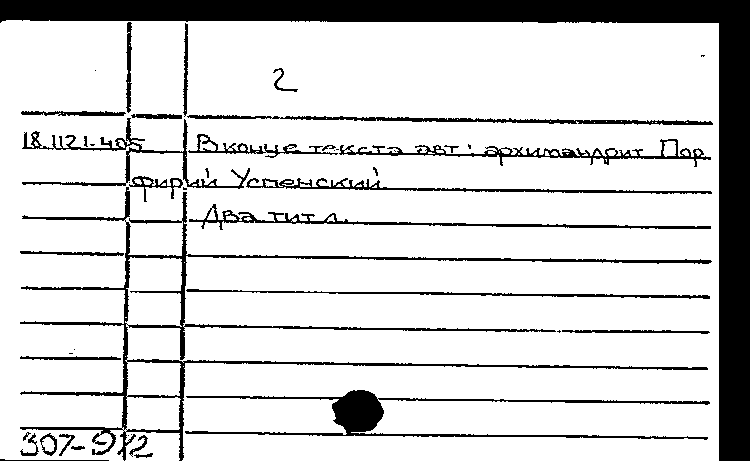 2
18.1121-405 В конце текста авт: архимандрит Пор
фирий Успенский
Два тит л.
307-972